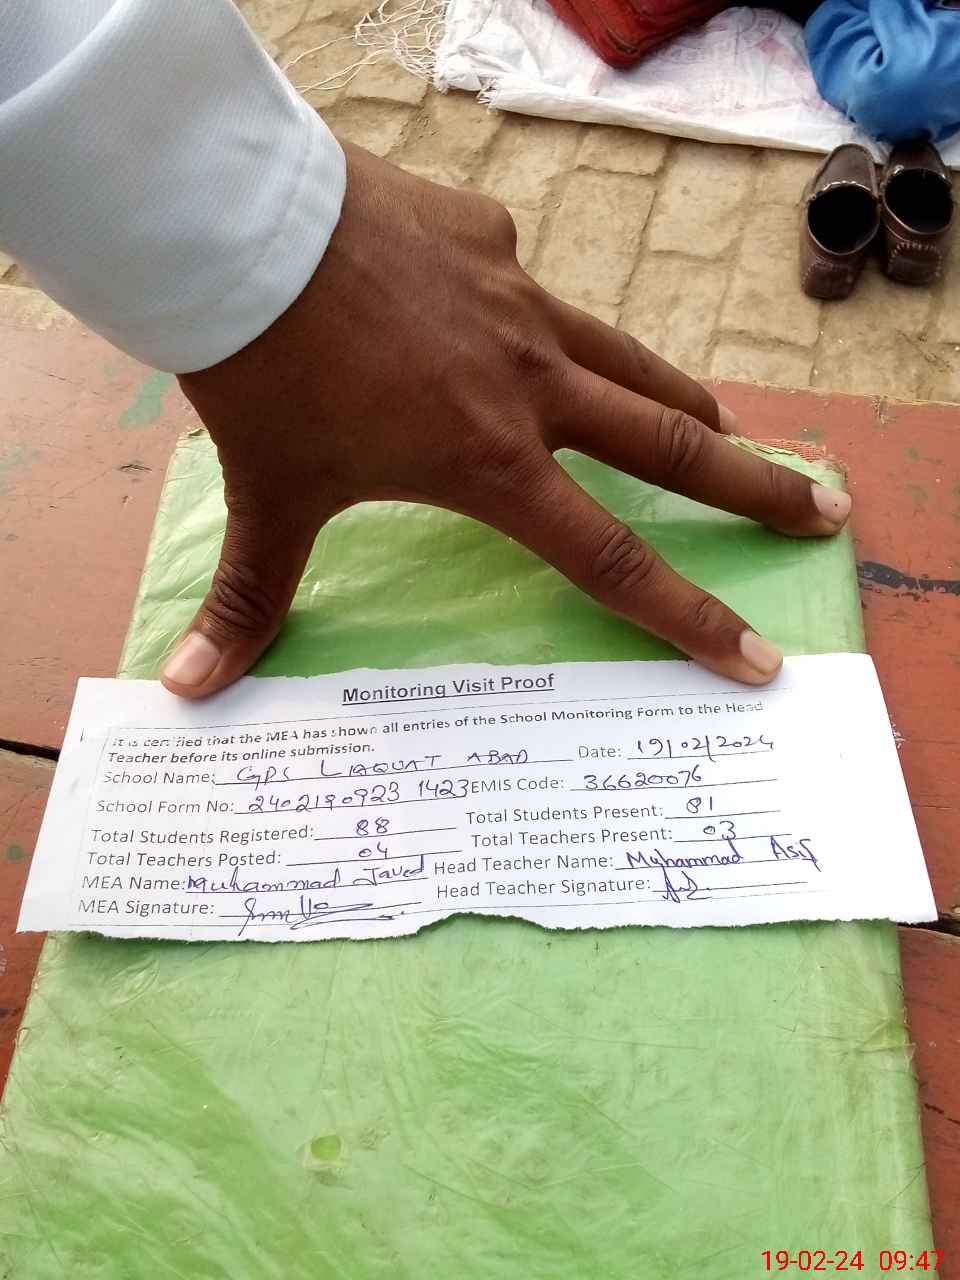 Monitoring Visit Proof
It is certified that the MEA has shown all entries of the School Monitoring Form to the Head
Teacher before its online submission.
School Name: GPS LIAQUAT ABAD Date: 19/02/2024
School Form No: 2402190923 1423 EMIS Code: 36620076
Total Students Registered: 88 Total Students Present: 81
Total Teachers Posted: 04 Total Teachers Present: 03
MEA Name: Muhammad Javed Head Teacher Name: Muhammad Asif
MEA Signature: Head Teacher Signature:
19-02-24 09:47